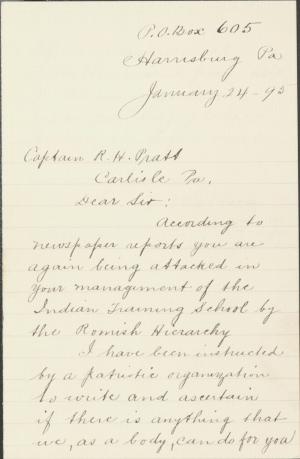 P.O. Box 605
Harrisburg Pa
January 24-95
Captain R. H. Pratt
Carlisle Pa.
Dear Sir:
According to
newspaper reports you are
again being attacked in
your management of the
Indian Training School by
the Romish Hierarchy
I have been instructed
by a patriotic organization
to write and ascertain
if there is anything that
we, as a body, can do for you